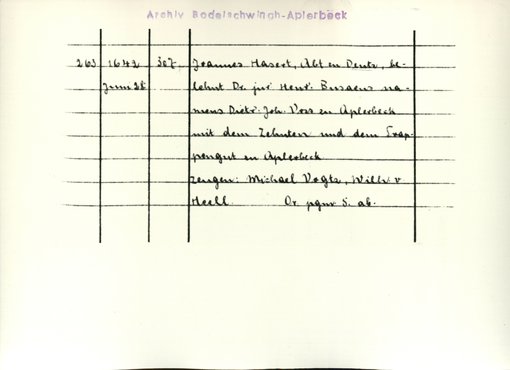 Archiv Bodelschwingh-Aplerbeck
263 1642 307 Joannes Hasert, Abt en Deutz, be-
Juni 28 lehnt Dr. jur Henr. Busaeus na-
mens Dietr. Joh. Voss en Aplerbeck
mit dem Zehnten und dem Trap-
pengut en Aplerbeck
Zeugen: Michael Vogts, Wilh. v
Or. pgm S. ab.